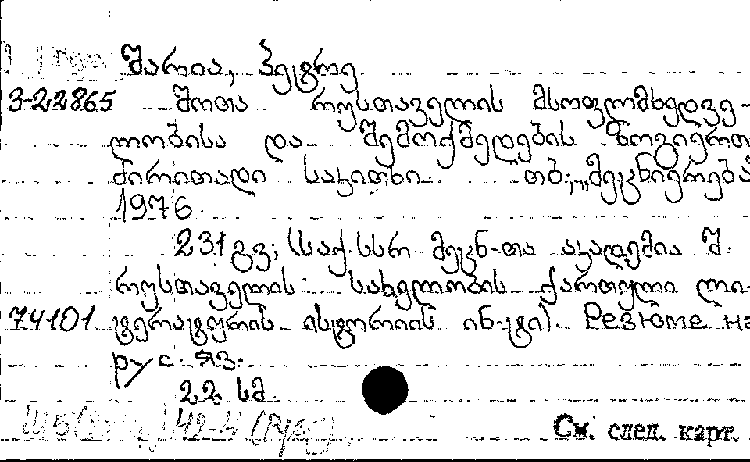 შარია, პეტრე
3-22865 შოთა რუსთაველის მსოფლმხედვე-
ლობისა და შემოქმედების ზოგიერთ
ძირითადი საკითხი. თბ., „მეცნიერება
1976
231 გვ; (საქ.სსრ მეცნ-თა აკადემია შ.
რუსთაველის სახელობის ქართული ლი-
74101 ტერატურის ისტორიის ინ-ტი). Резюме на
рус. яз.
22 სმ
См. след. карт.